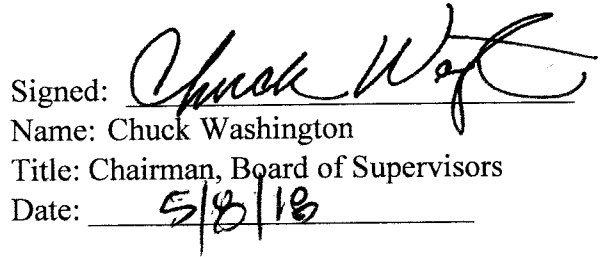 Signed: Chuck Wa
Name: Chuck Washington
Title: Chairman, Board of Supervisors
Date: 5/8/18